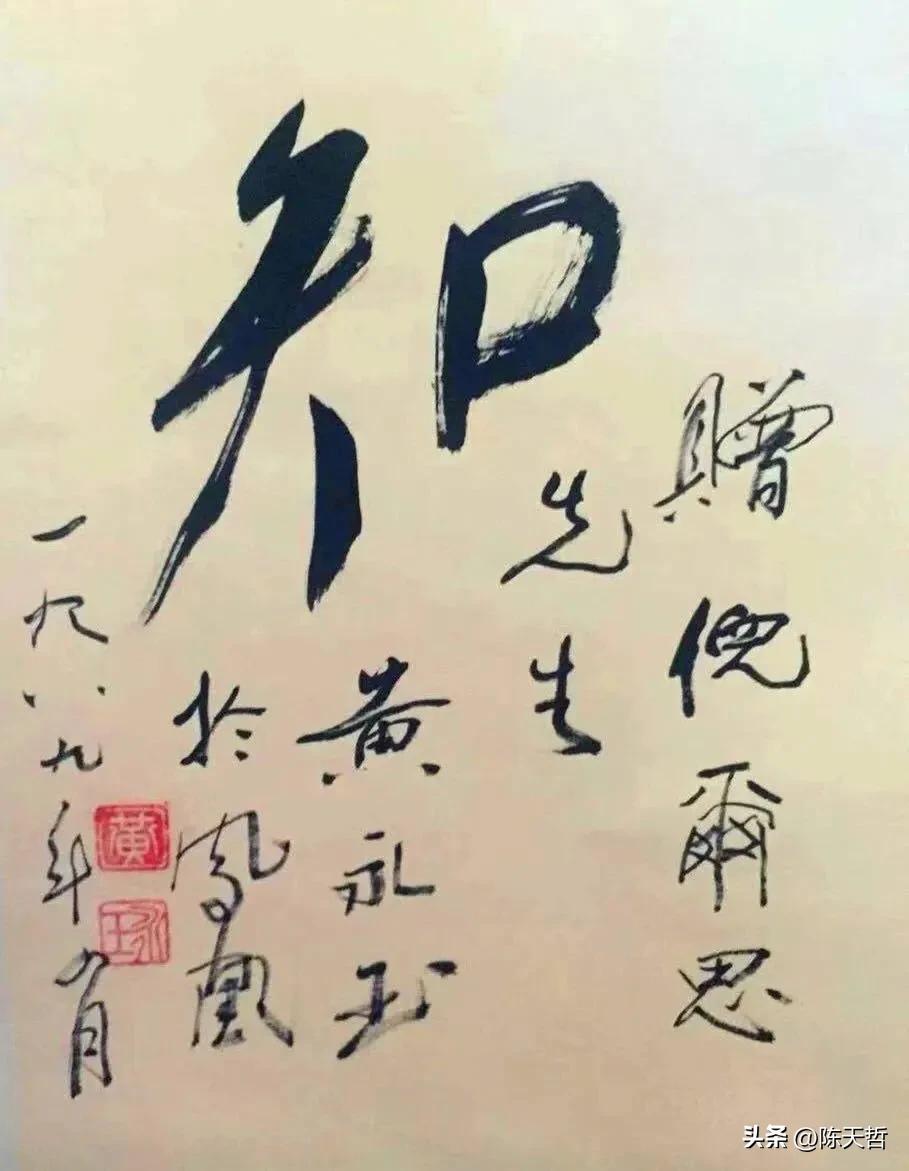 知
贈倪爾思
先生
黃永玉
於鳳凰
一九八九年九月
黃
永玉
头条 @陈天哲